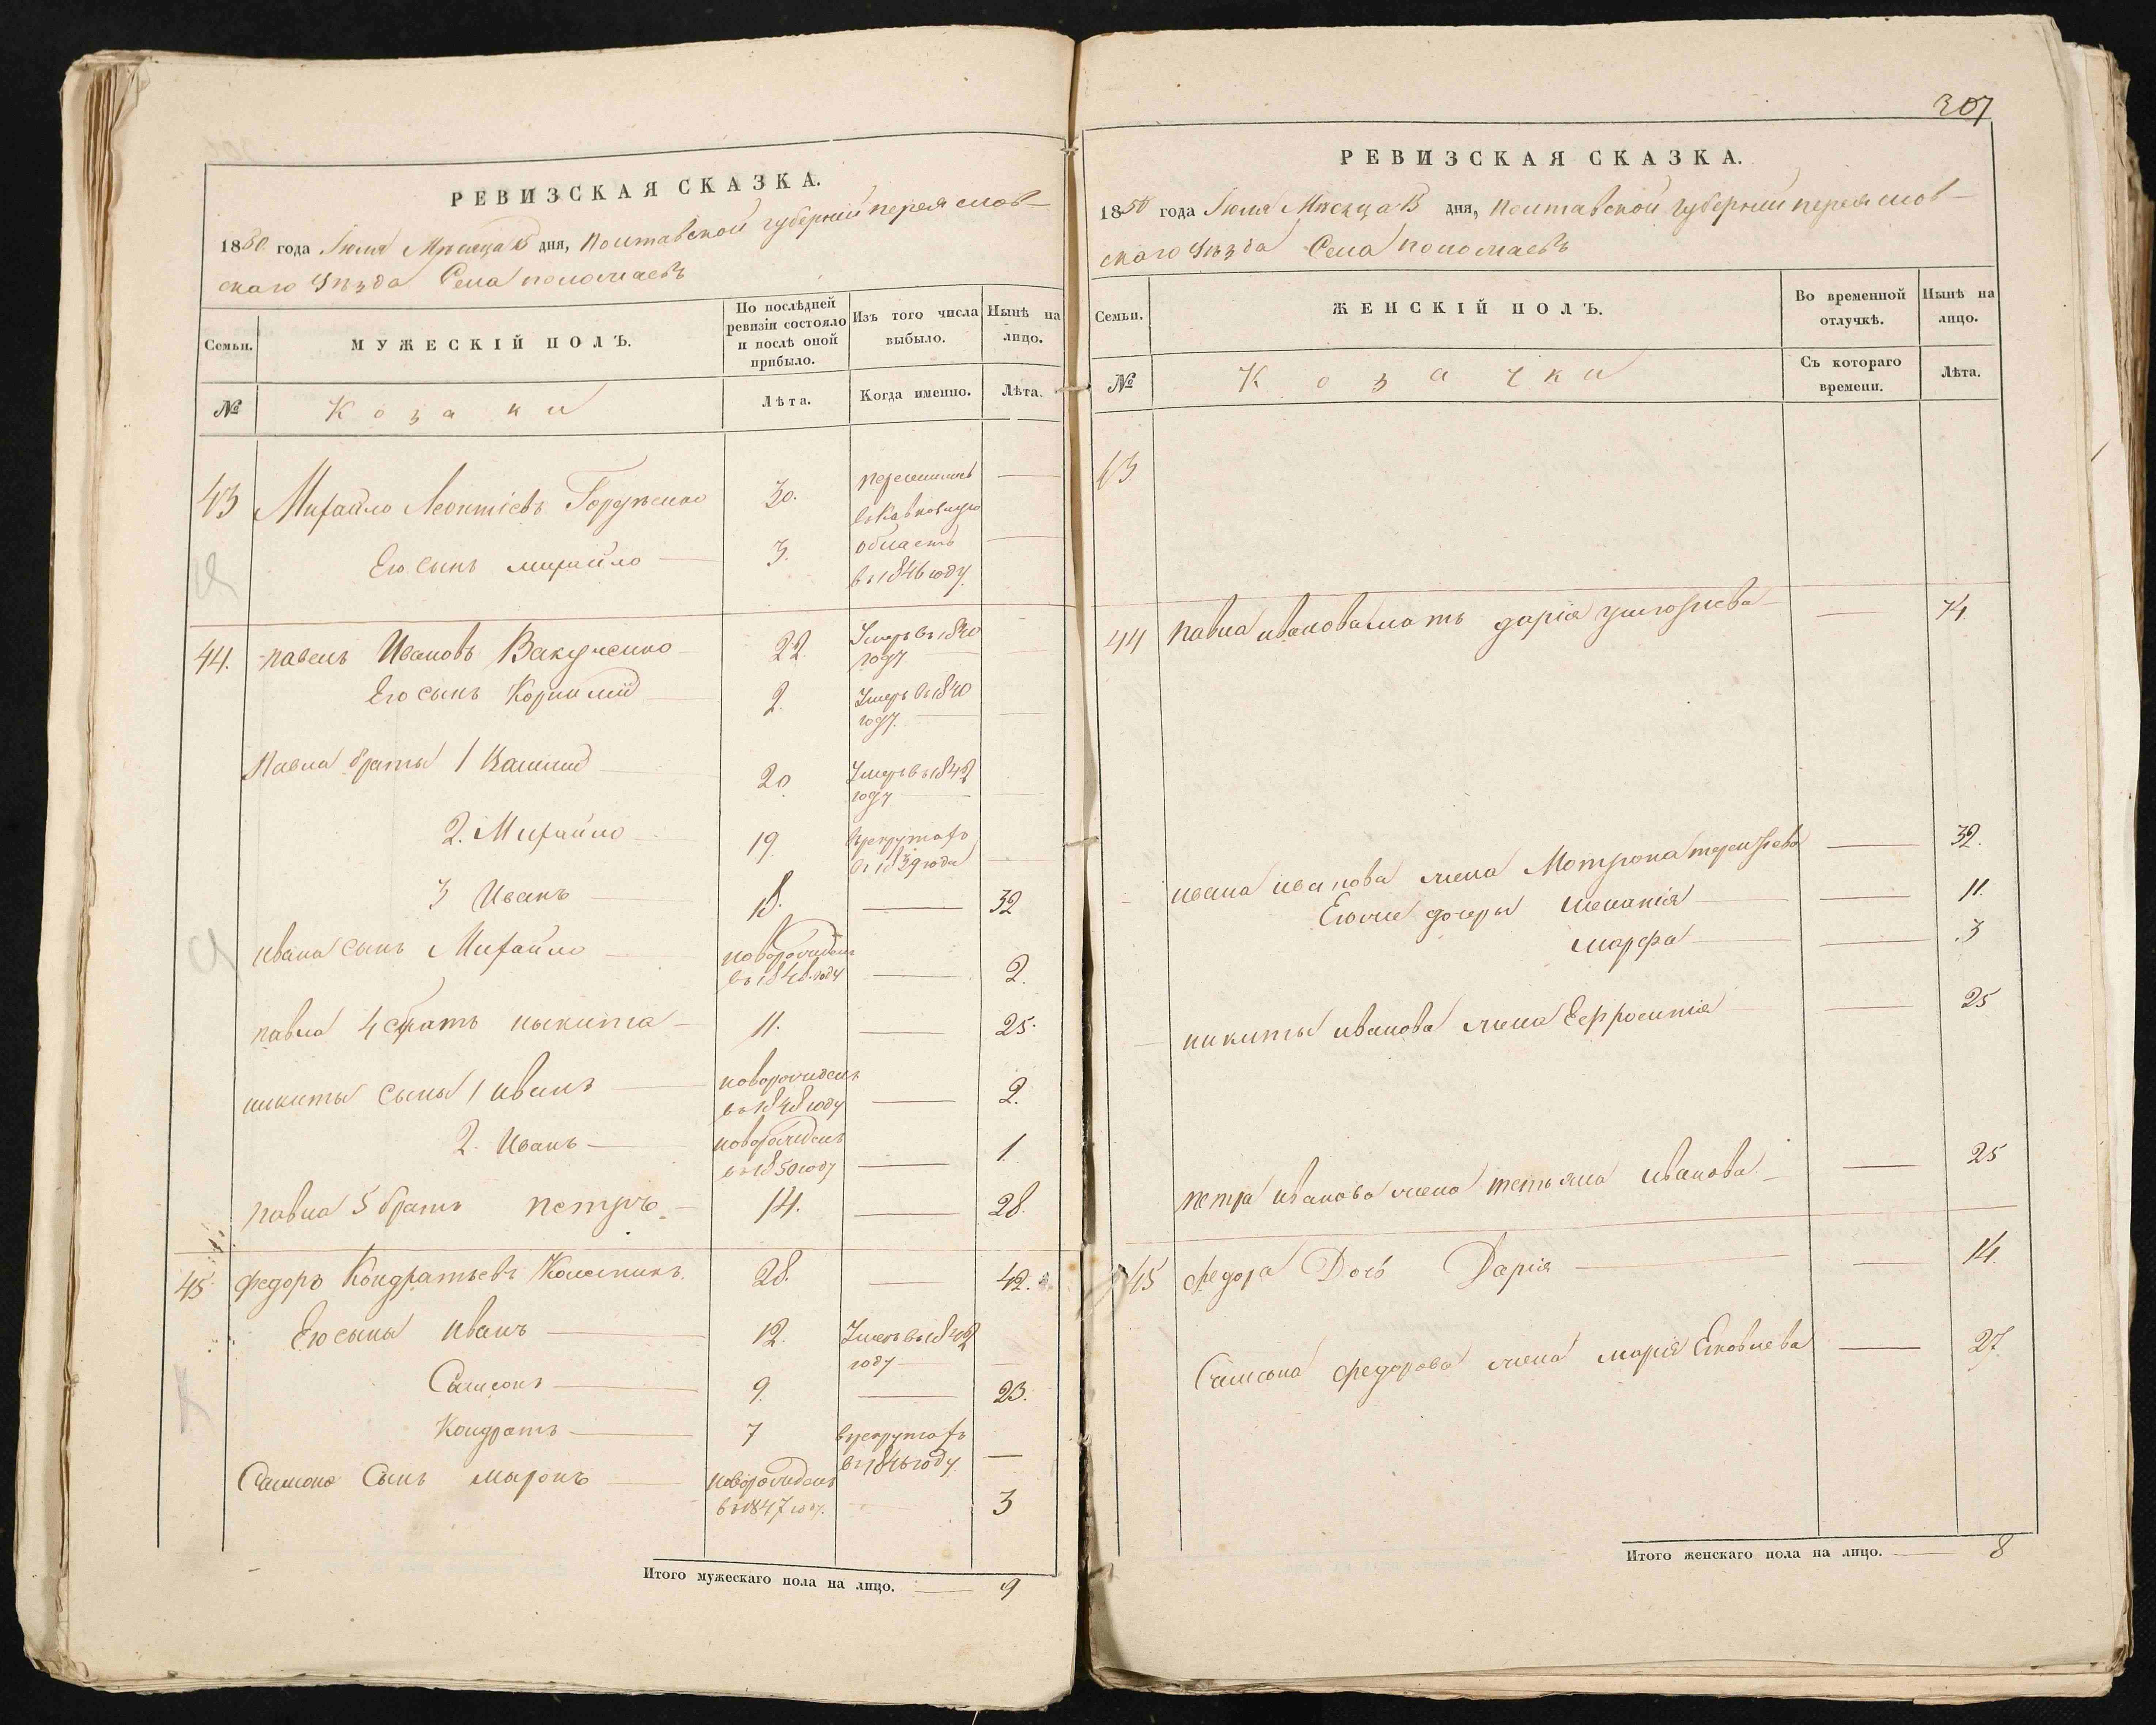 РЕВИЗСКАЯ СКАЗКА.
1850 года Іюля Мѣсяца дня, Полтавской губерніи переяслов-
скаго Уѣзда Села помоклаевъ
Семьи.
МУЖЕСКІЙ ПОЛЪ.
По послѣдней ревизіи состояло и послѣ оной прибыло.
Изъ того числа выбыло.
Нынѣ на лицо.
№
Козаки
Лѣта.
Когда именно.
Лѣта.
43 Михайло Леонтіевъ 30. переселились
въ Кавказкую
Его сынъ михайло 3. область
въ 1846 году
44. павелъ Ивановъ Вакуленко 22. Умеръ въ 1840
году
Его сынъ Корнилій 2. Умеръ въ 1840
году.
Павла браты 1 20 Умеръ въ 1842
году
2. Михайло 19. врекрутахъ
въ 1839 года
3 Иванъ 18. 32
ивана сынъ Михайло новорожденъ
въ 1848 году 2.
павла 4 братъ никита 11. 25.
никиты сыны 1 иванъ новорожденъ
въ 1848 году 2.
2. Иванъ новорожденъ
въ 1850 году 1.
павла 5 братъ петръ 14. 28.
45. федоръ Кондратьевъ Колесникъ 28. 42.
Его сыны иванъ 12. Умеръ въ 1842
году
Самсонъ 9. 23.
Кондратъ 7 врекрутахъ
въ 1846 году.
Самсона Сынъ миронъ новорожденъ
въ 1847 году. 3
Итого мужескаго пола на лицо. 9
307
РЕВИЗСКАЯ СКАЗКА.
1850 года Іюля Мѣсяца дня, полтавской губерніи переяслов-
скаго Уѣзда Села помоклаевъ
Семьи.
ЖЕНСКІЙ ПОЛЪ.
Во временной отлучкѣ.
Нынѣ на лицо.
№
Козачки
Съ котораго времени.
Лѣта.
43
44 павла иванова мать дарія 74.
ивана иванова жена Мотрона терентіева 32.
Его же дочеры меланія 11.
марфа 3
никиты иванова жена Ефросинія 25
петра иванова жена тетьяна иванова 25
45 федора Дочь Дарія 14.
Самсона федорова жена марія Ековлева 27.
Итого женскаго пола на лицо. 8